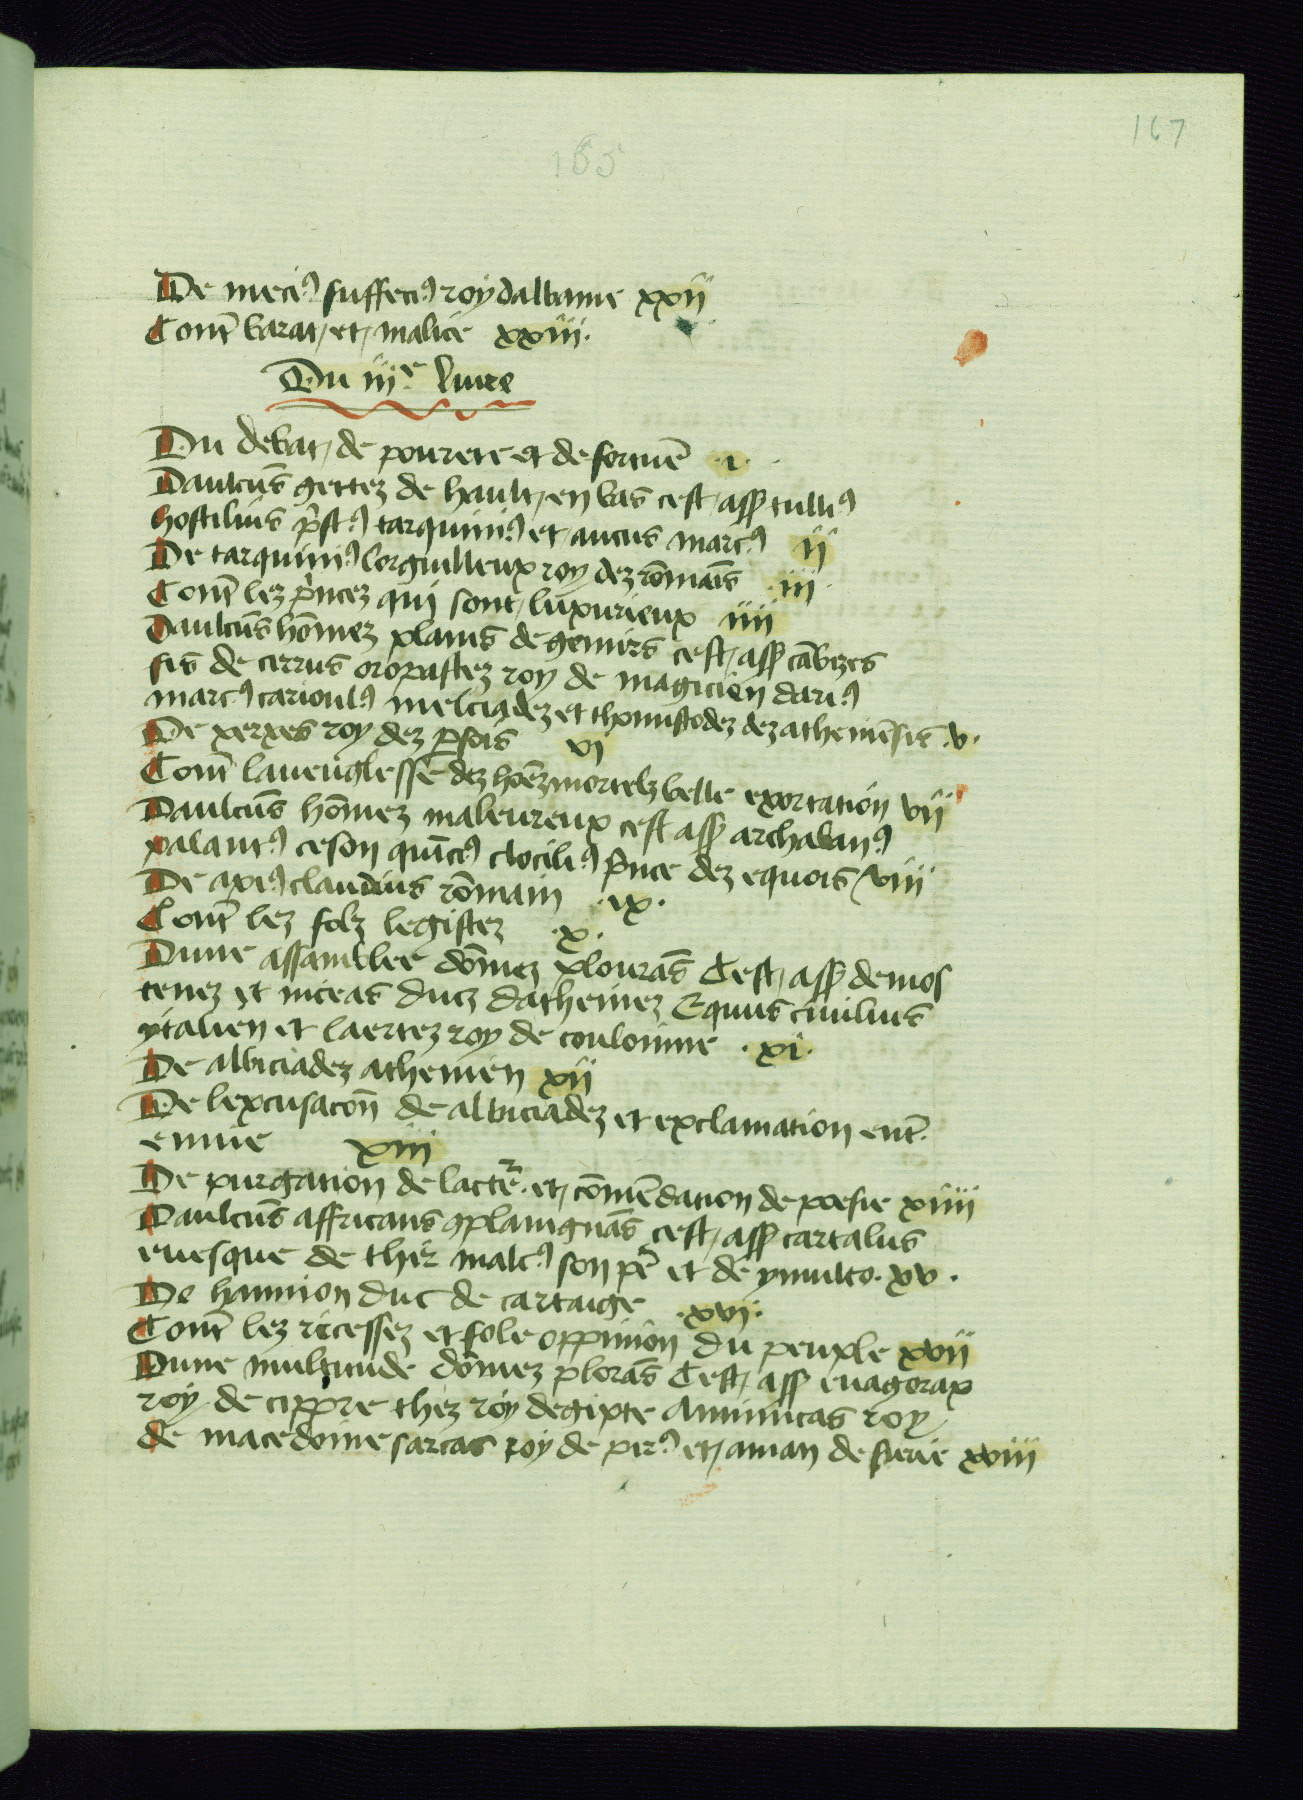 167
165
De meciꝰ suffeciꝰ roy dalbanie xxii
Contᷓ barat et malice xxiii.
Du iiiᵉ. liure
Du debat de pourete et de fortune̅ .i.
Daulcu̅s gettez de hault en bas cest ass tulliꝰ
hostilius p̅stꝰ tarquiniꝰ et ancus marcꝰ ii
De tarquiniꝰ lorguilleux roy dez romai̅s .iii.
Cont̅ lez p̅ncez qui sont luxurieux iiii
Daulcu̅s ho̅mez plains de gemirs cest ass ca̅bizes
fis de cirrus oropastez roy de magicien dariꝰ
marcꝰ carioulꝰ melciadez et themistodez dez athenie̅sis .v.
De xerxes roy dez p̲sois vi
Cont̅ laueuglesse dez ho̅ez mortelz belle exortation vii
Daulcu̅s ho̅mez maleureux cest ass archabanꝰ
palantꝰ ceson qui̅cꝰ clociliꝰ p̅nce dez equois viii
De apiꝰ claudius ro̅main .ix.
Cont̅ lez folz legistez .x.
Dune assamblee do̅mez ploura̅s Cest ass demos
tenez et niceas ducz dathenez Equus ciuilius
ytalien et laertez roy de coulonne .xi.
De albiciadez athenien xii
De lexcusaco̅n de albiciadez et exclamation cont̅.
enuie xiii
De purgation de lacte̅. et co̅me̅dation de poesie xiiii
Daulcu̅s affricans ꝯplaingna̅s cest ass cartalus
euesque de thir malcꝰ son pe̅ et de ymulco. xv.
De hannion duc de cartaige .xvi.
Cont̅ lez ricessez et fole oppinion du peuple xvii
Dune multitude do̅mez plora̅s Cest ass euagorax
roy de cippre thez roy degipte Amintas roy
de macedoine sarcas roy de pirꝰ et aman de surie xviii